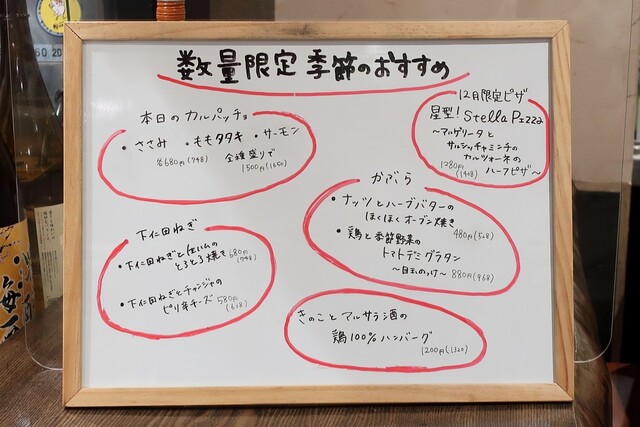 数量限定 季節のおすすめ
本日のカルパッチョ
・ささみ ・ももタタキ ・サーモン
各680円(748) 全種盛りで
1500円(1650)
12月限定ピザ
星型! Stella Pizza
〜マルゲリータと
サルシッチャミンチの
カルツォーネの
ハーフピザ〜
1280円
(1408)
かぶら
・ナッツとハーブバターの
ほくほくオーブン焼き
480円(528)
・鶏と季節野菜の
トマトデミグラタン
〜目玉のっけ〜 880円(968)
下仁田ねぎ
・下仁田ねぎと生ハムの
とろとろ焼き 680円
(748)
・下仁田ねぎとチャンジャの
ピリ辛チーズ 580円
(638)
きのことマルサラ酒の
鶏100%ハンバーグ
1200円(1320)